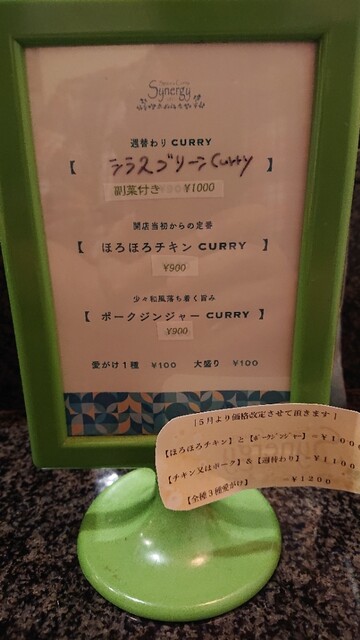 Synergy
週替わり CURRY
【 シラスグリーンCurry 】
副菜付き ¥1000
開店当初からの定番
【 ほろほろチキン CURRY 】
¥900
少々和風落ち着く旨み
【 ポークジンジャー CURRY 】
¥900
愛がけ1種 ¥100 大盛り ¥100
［5月より価格改定させて頂きます］
【ほろほろチキン】と【ポークジンジャー】 ¥1000
【チキン又はポーク】&【週替わり】 ¥1100
【全種3種愛がけ】 ー¥1200